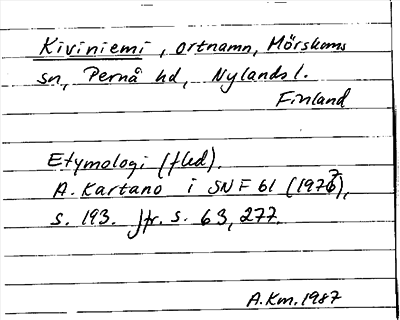 Kiviniemi, ortnamn, Mörskoms
sn, Pernå hd, Nylands l.
Finland
Etymologi (fled).
A. Kartano i SNF 61 (1976),
s. 193. Jfr. s. 63, 277.
A.Km.1987